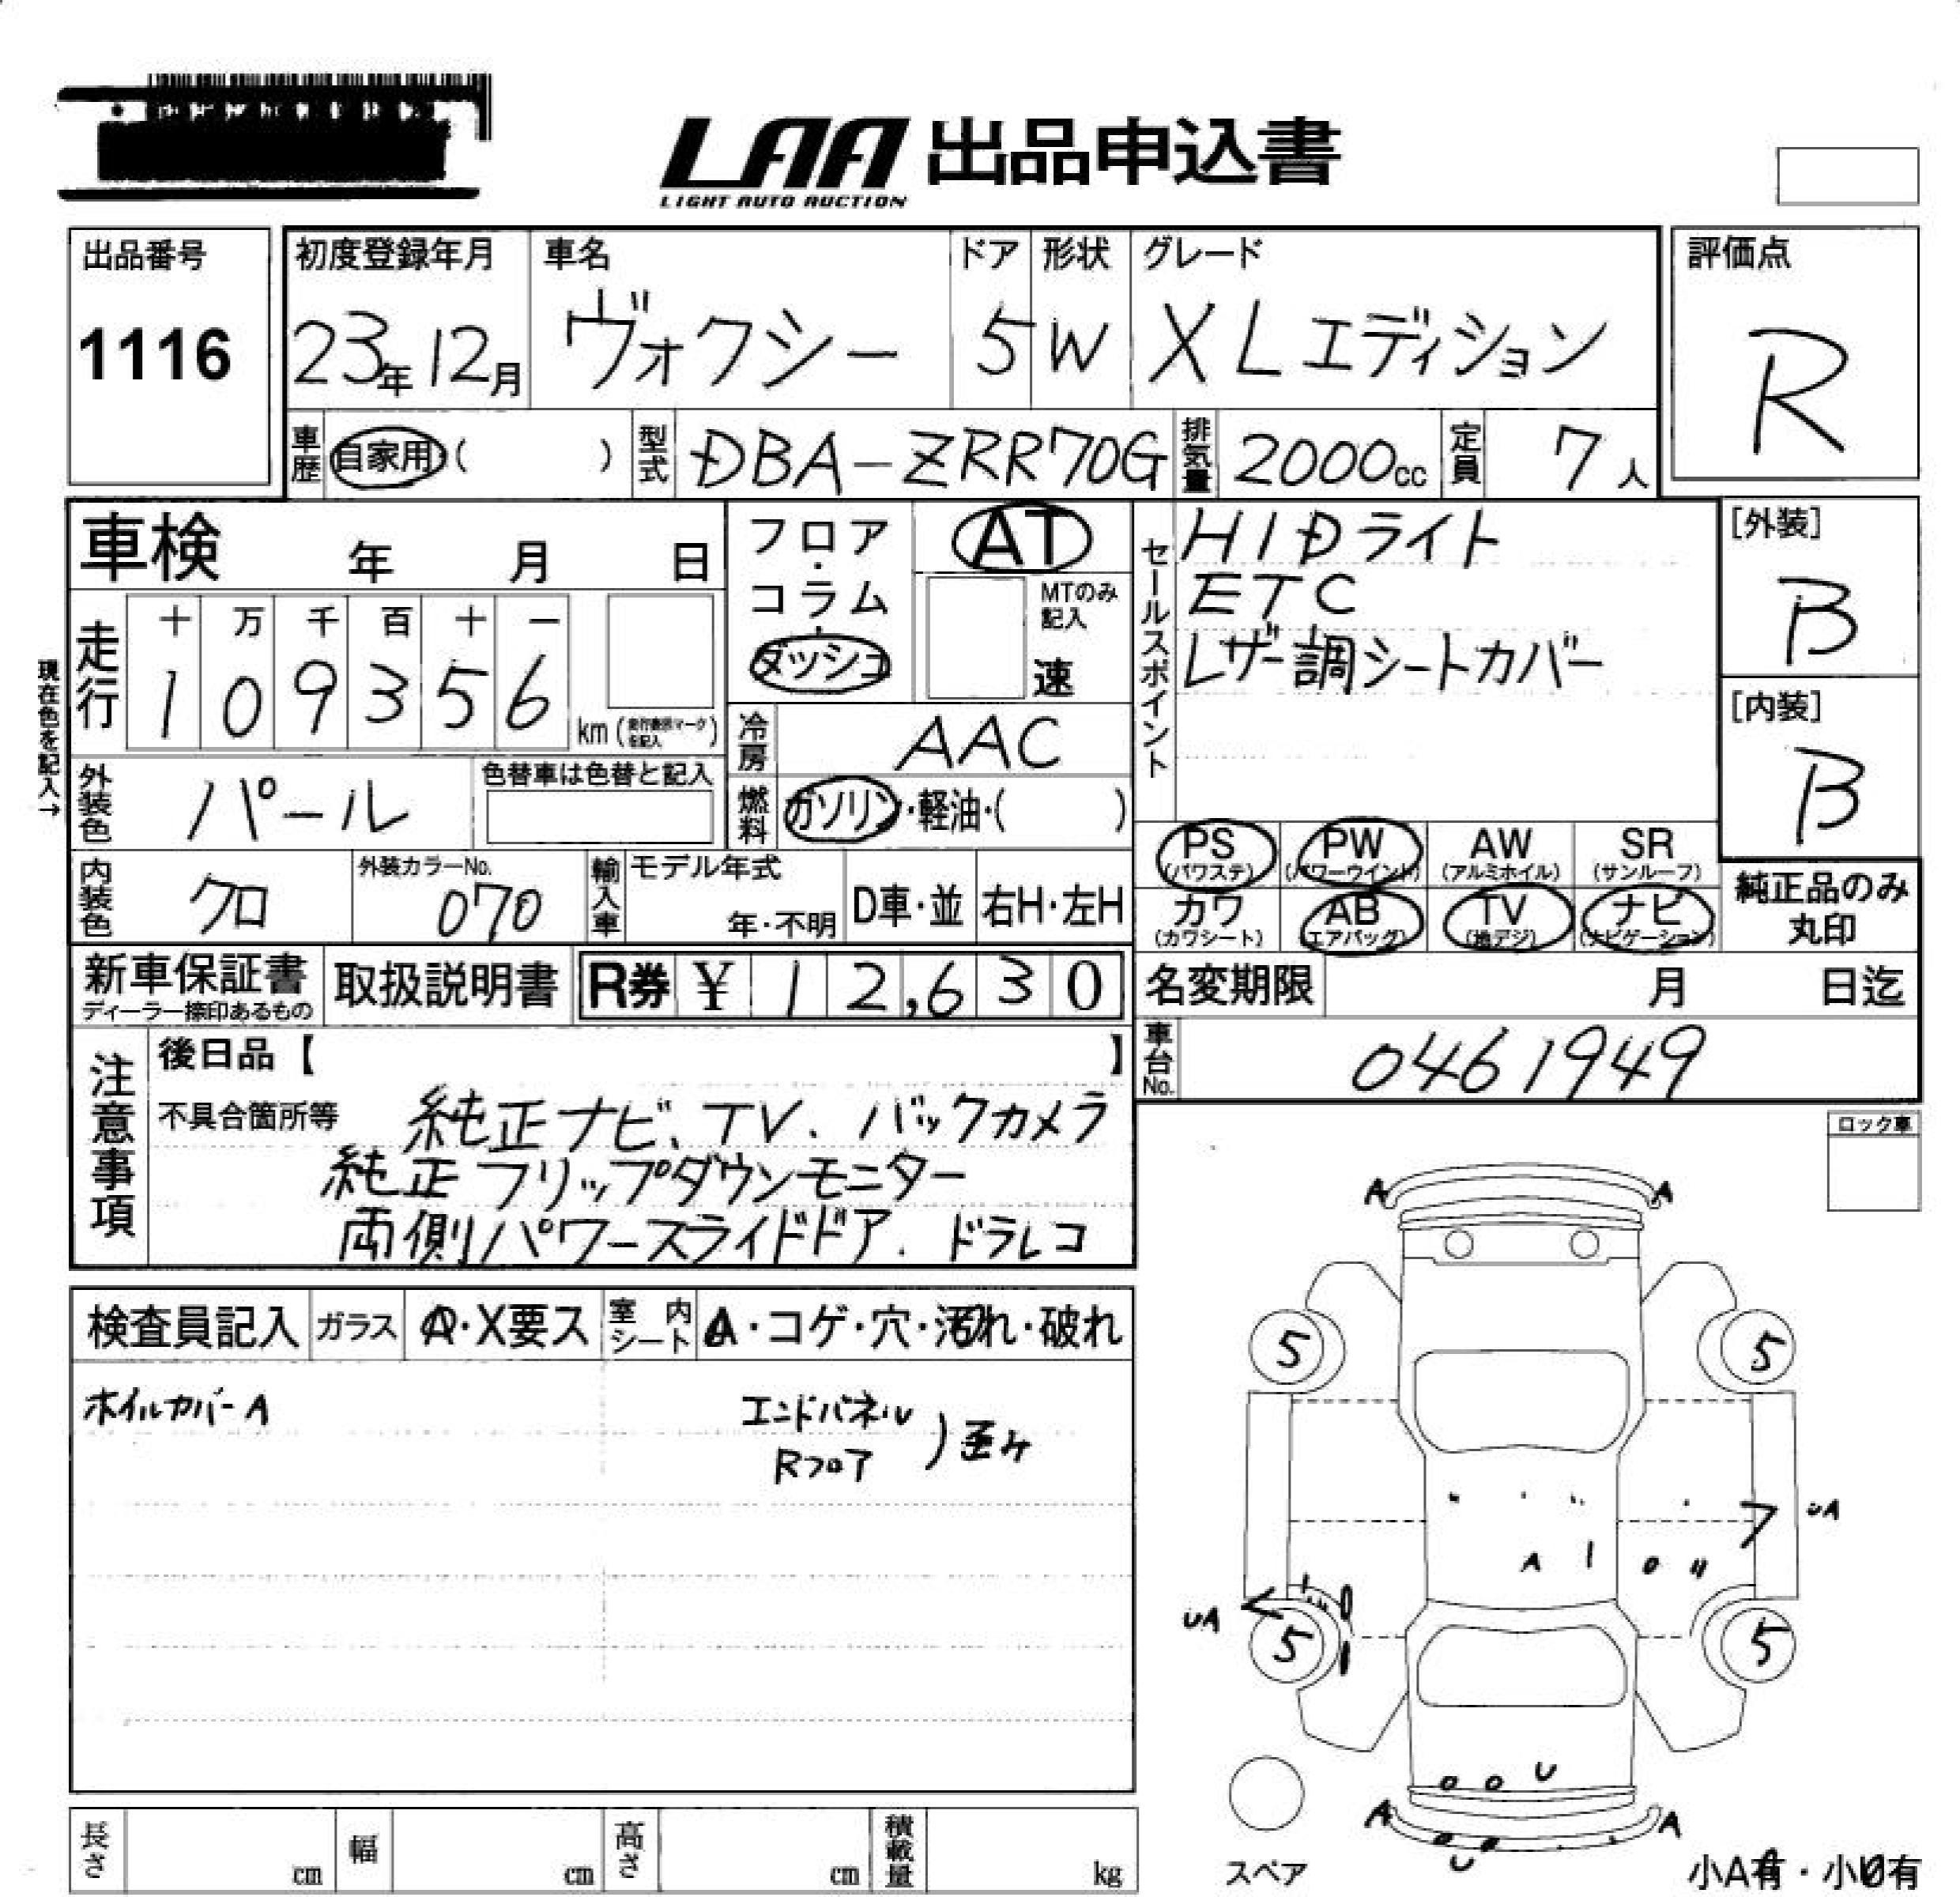 LAA 出品申込書
LIGHT AUTO AUCTION
出品番号
1116
初度登録年月 車名 ドア 形状 グレード 評価点
23年12月 ヴォクシー 5 W X Lエディション R
車歴 自家用 ( ) 型式 DBA-ZRR70G 排気量 2000cc 定員 7人
車検 年 月 日
フロア・コラム・ダッシュ
AT
MTのみ記入
速
セールスポイント
HIDライト
ETC
レザー調シートカバー
[外装]
B
[内装]
B
現在色を記入→
走行 十 万 千 百 十 一
1 0 9 3 5 6 km (走行表示マークを記入)
冷房 AAC
外装色 パール 色替車は色替と記入
燃料 ガソリン・軽油・( )
内装色 クロ 外装カラーNo. 070
輸入車 モデル年式 年・不明 D車・並 右H・左H
PS (パワステ) PW (パワーウインド) AW (アルミホイル) SR (サンルーフ)
カワ (カワシート) AB (エアバッグ) TV (地デジ) ナビ (ナビゲーション)
純正品のみ丸印
新車保証書 取扱説明書 R券 ¥ 12,630
ディーラー捺印あるもの
名変期限 月 日迄
車台No. 0461949
注意事項
後日品【 】
不具合箇所等 純正ナビ、TV、バックカメラ
純正フリップダウンモニター
両側パワースライドドア、ドラレコ
ロック車
検査員記入 ガラス A・X要ス 室内シート A・コゲ・穴・汚れ・破れ
ホイルカバーA
エンドパネル
Rフロア ) 歪み
A A
5 5
UA
A
UA
5 5
U
A A
U
スペア
小A有・小U有
長さ cm 幅 cm 高さ cm 積載量 kg